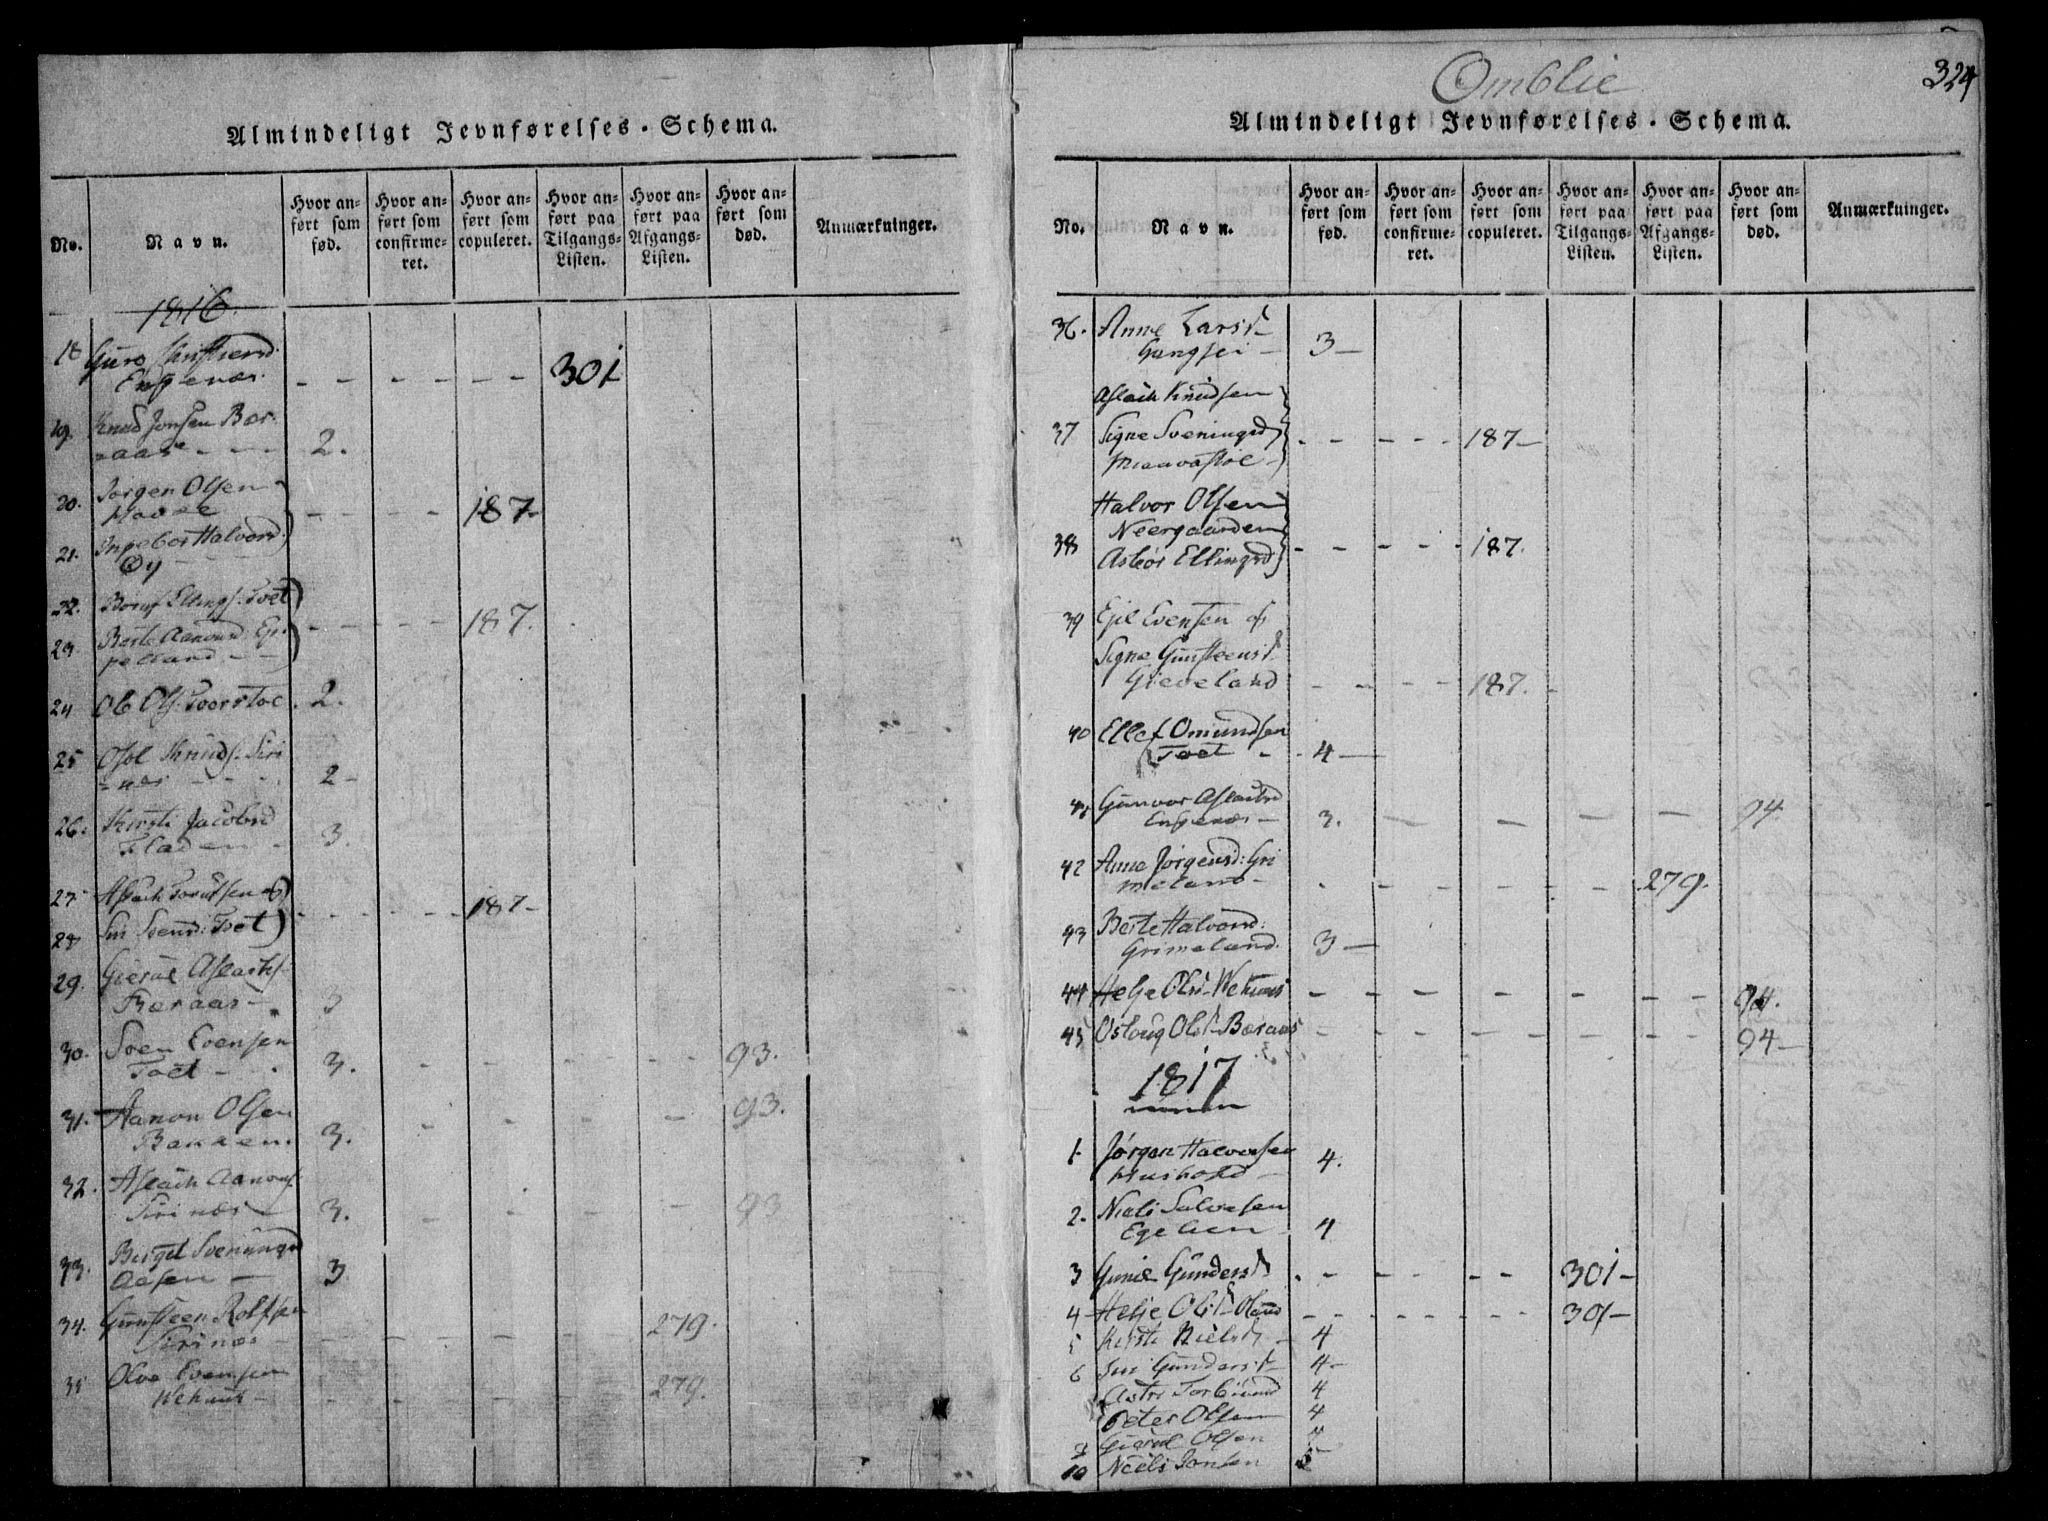 Almindeligt Jevnførelses-Schema.
No.
Navn.
Hvor an-
ført som
fød.
Hvor an-
ført som
confirme-
ret.
Hvor an-
ført som
copuleret.
Hvor an-
ført paa
Tilgangs-
Listen.
Hvor an-
ført paa
Afgangs-
Listen.
Hvor an-
ført som
død.
Anmærkninger.
1816.
18 Guro
Engenæs. - - - - - - 301
19. Knud Jonsen Bær-
=aas - - - 2.
20. Jørgen Olsen
- - - - 187-
21. Ingebor Halvorsd.
Øy - -
22. Ellings. Tvet
- - - - 187.
23 Berte Aanund.
24 Ole Ols. 2.
25 Knuds. Siri
=næs - - - 2-
26. Kirsti Jacobsd
Fladen - 3.
27. Aslach
- - - - - 187-
28 Siri Svend: Tvet
29. Gierul Aslachs.
Bæraas - 3
30. Sven Evensen
Tvet - - 3. - - - - 93.
31. Aanon Olsen
Bakken. 3. - - - - 93.
32. Aslach Aanons.
Sirinæs 3. - - - - 93
33. Birgit Sveningsd
Aasen - 3
34. Gunsteen Rolfsen
Sirinæs - - - - - 279.
35 Olve Evensen
Wehuus - - - - - 279.
Omblie
324
Almindeligt Jevnførelses-Schema.
No.
Navn.
Hvor an-
ført som
fød.
Hvor an-
ført som
confirme-
ret.
Hvor an-
ført som
copuleret.
Hvor an-
ført paa
Tilgangs-
Listen.
Hvor an-
ført paa
Afgangs-
Listen.
Hvor an-
ført som
død.
Anmærkninger.
36. Anne Larsd
Gangsei - 3-
Aslach Knudsen
37 Signe Sveningsd - - - - - 187-
Halvor Olsen
Neergaarden
38 Ellingsd - - - - - 187.
39 Egil Evensen og
Signe Gunsteensd
Gieveland - - - - 187.
40 Ellef Omundsen
Tvet - 4-
41 Gunvor Aslachsd
Engenæs - 3. - - - - 94.
42 Anne Jørgensd: Gri
meland - - - - - - 279.
43 Berte Halvorsd:
Grimeland. 3-
44 Helje Olsd. Wehuus - - - - - 94.
45 Osloug Olsd. Bæraas - - - - - 94-
1817
1. Jørgen Halvorsen
4.
2. Niels Salvesen
Egelien 4
3 Gunild Gundersd - - - - - 301-
4 Helje Olsd. - - - - - - 301-
5 Kirsti Nielsd - 4
6 Siri Gundersd 4-
Astri Torbiørnd 4
Peter Olsen 4
9 Gierul Olsen 4
10 Niels Jonsen